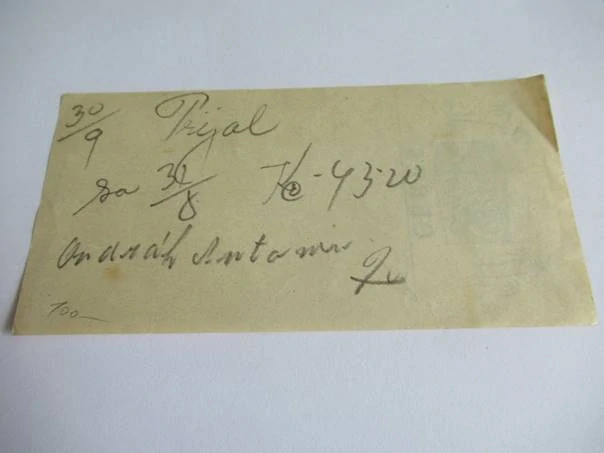 30/9 Prijal
sa 30/8 Kč - 43·20
Ondráh Antonin
100—